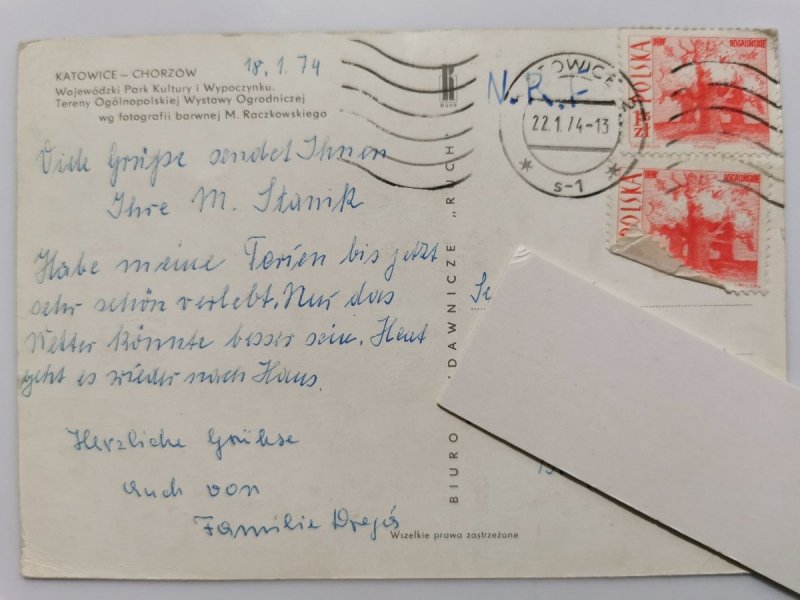 KATOWICE – CHORZÓW
Wojewódzki Park Kultury i Wypoczynku.
Tereny Ogólnopolskiej Wystawy Ogrodniczej
wg fotografii barwnej M. Raczkowskiego
18.1.74
Viele Grüße sendet Ihnen
Ihre M. Stanik
Habe meine Ferien bis jetzt
sehr schön verlebt. Nur das
Wetter könnte besser sein. Heut
geht es wieder nach Haus.
Herzliche Grühse
auch von
Familie
RUCH
BIURO
DAWNICZE „RUCH"
Wszelkie prawa zastrzeżone
N.R.F
22.1.74-13
s-1
DĘBY ROGALIŃSKIE
POLSKA
zł
ROGALIŃSKIE
POLSKA